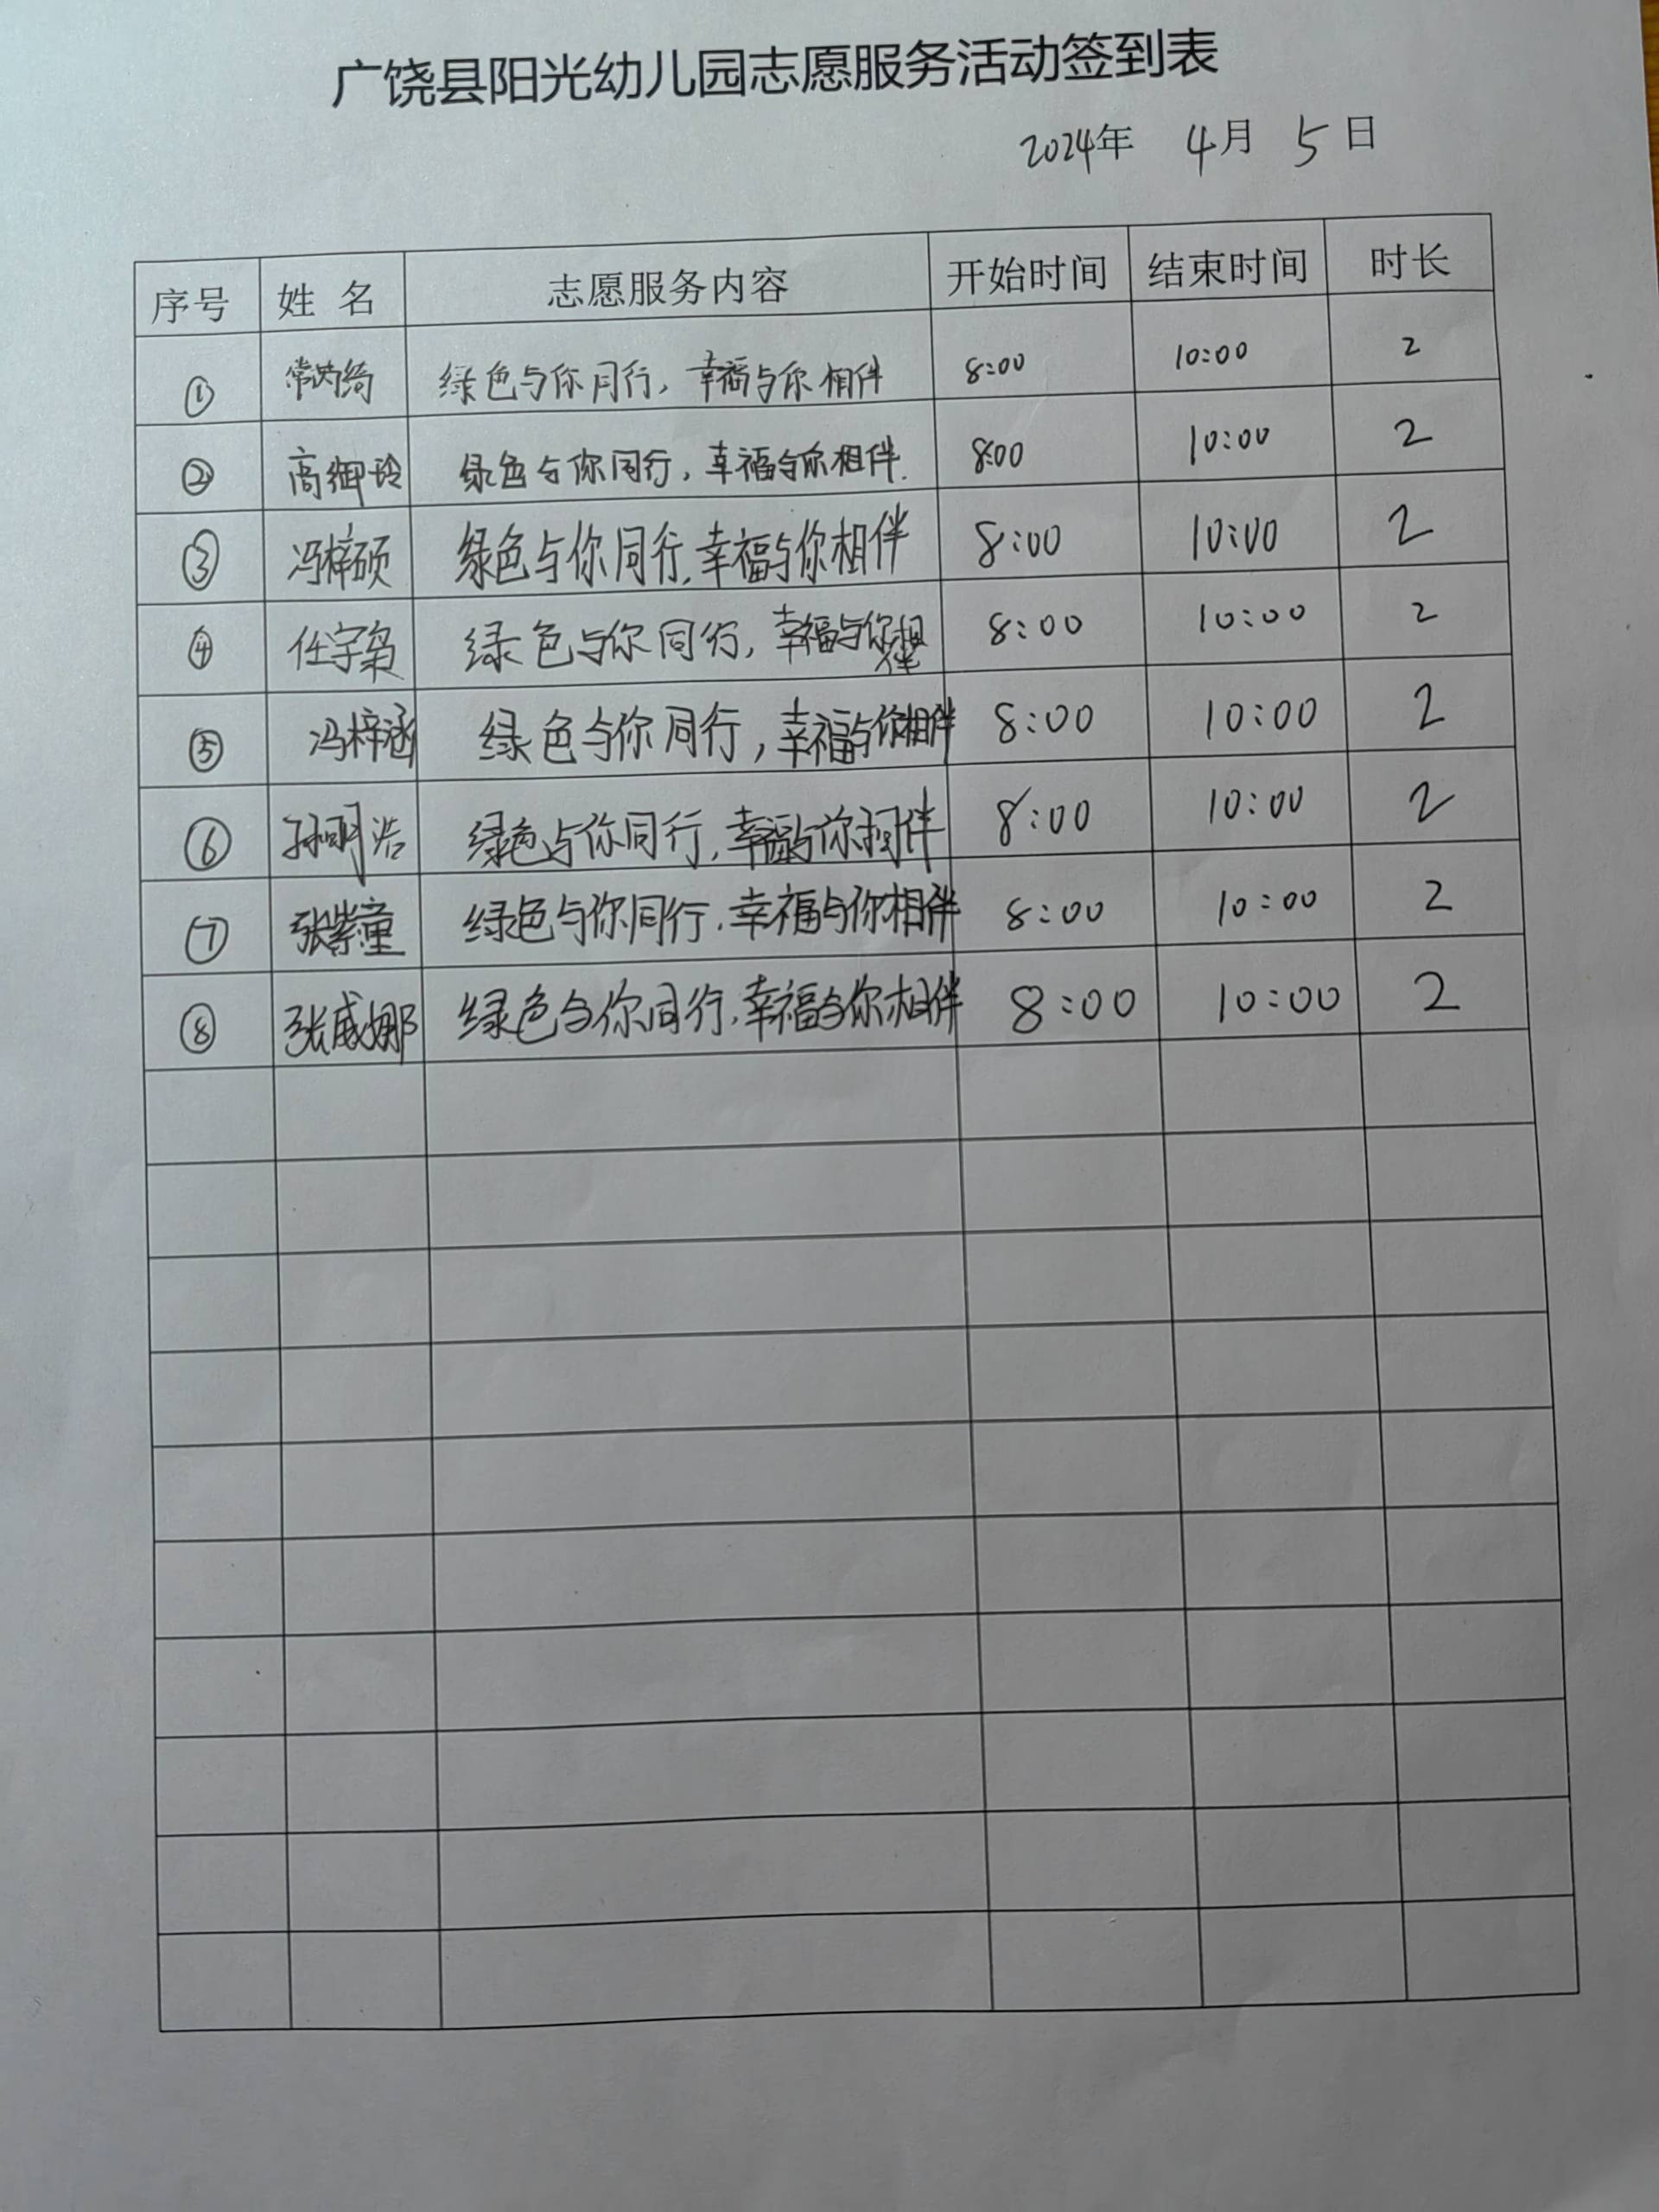 广饶县阳光幼儿园志愿服务活动签到表
2024年 4月 5日
序号 姓 名 志愿服务内容 开始时间 结束时间 时长
① 绿色与你同行，幸福与你相伴 8:00 10:00 2
② 高御玲 绿色与你同行，幸福与你相伴. 8:00 10:00 2
③ 冯梓硕 绿色与你同行,幸福与你相伴 8:00 10:00 2
④ 任宇枭 绿色与你同行，幸福与你相伴 8:00 10:00 2
⑤ 冯梓涵 绿色与你同行，幸福与你相伴 8:00 10:00 2
⑥ 孙明浩 绿色与你同行，幸福与你相伴 8:00 10:00 2
⑦ 张紫童 绿色与你同行，幸福与你相伴 8:00 10:00 2
⑧ 张威娜 绿色与你同行，幸福与你相伴 8:00 10:00 2